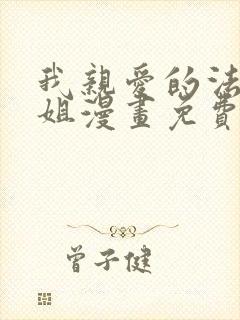 我親愛的法
姐漫畫免費
曾子健